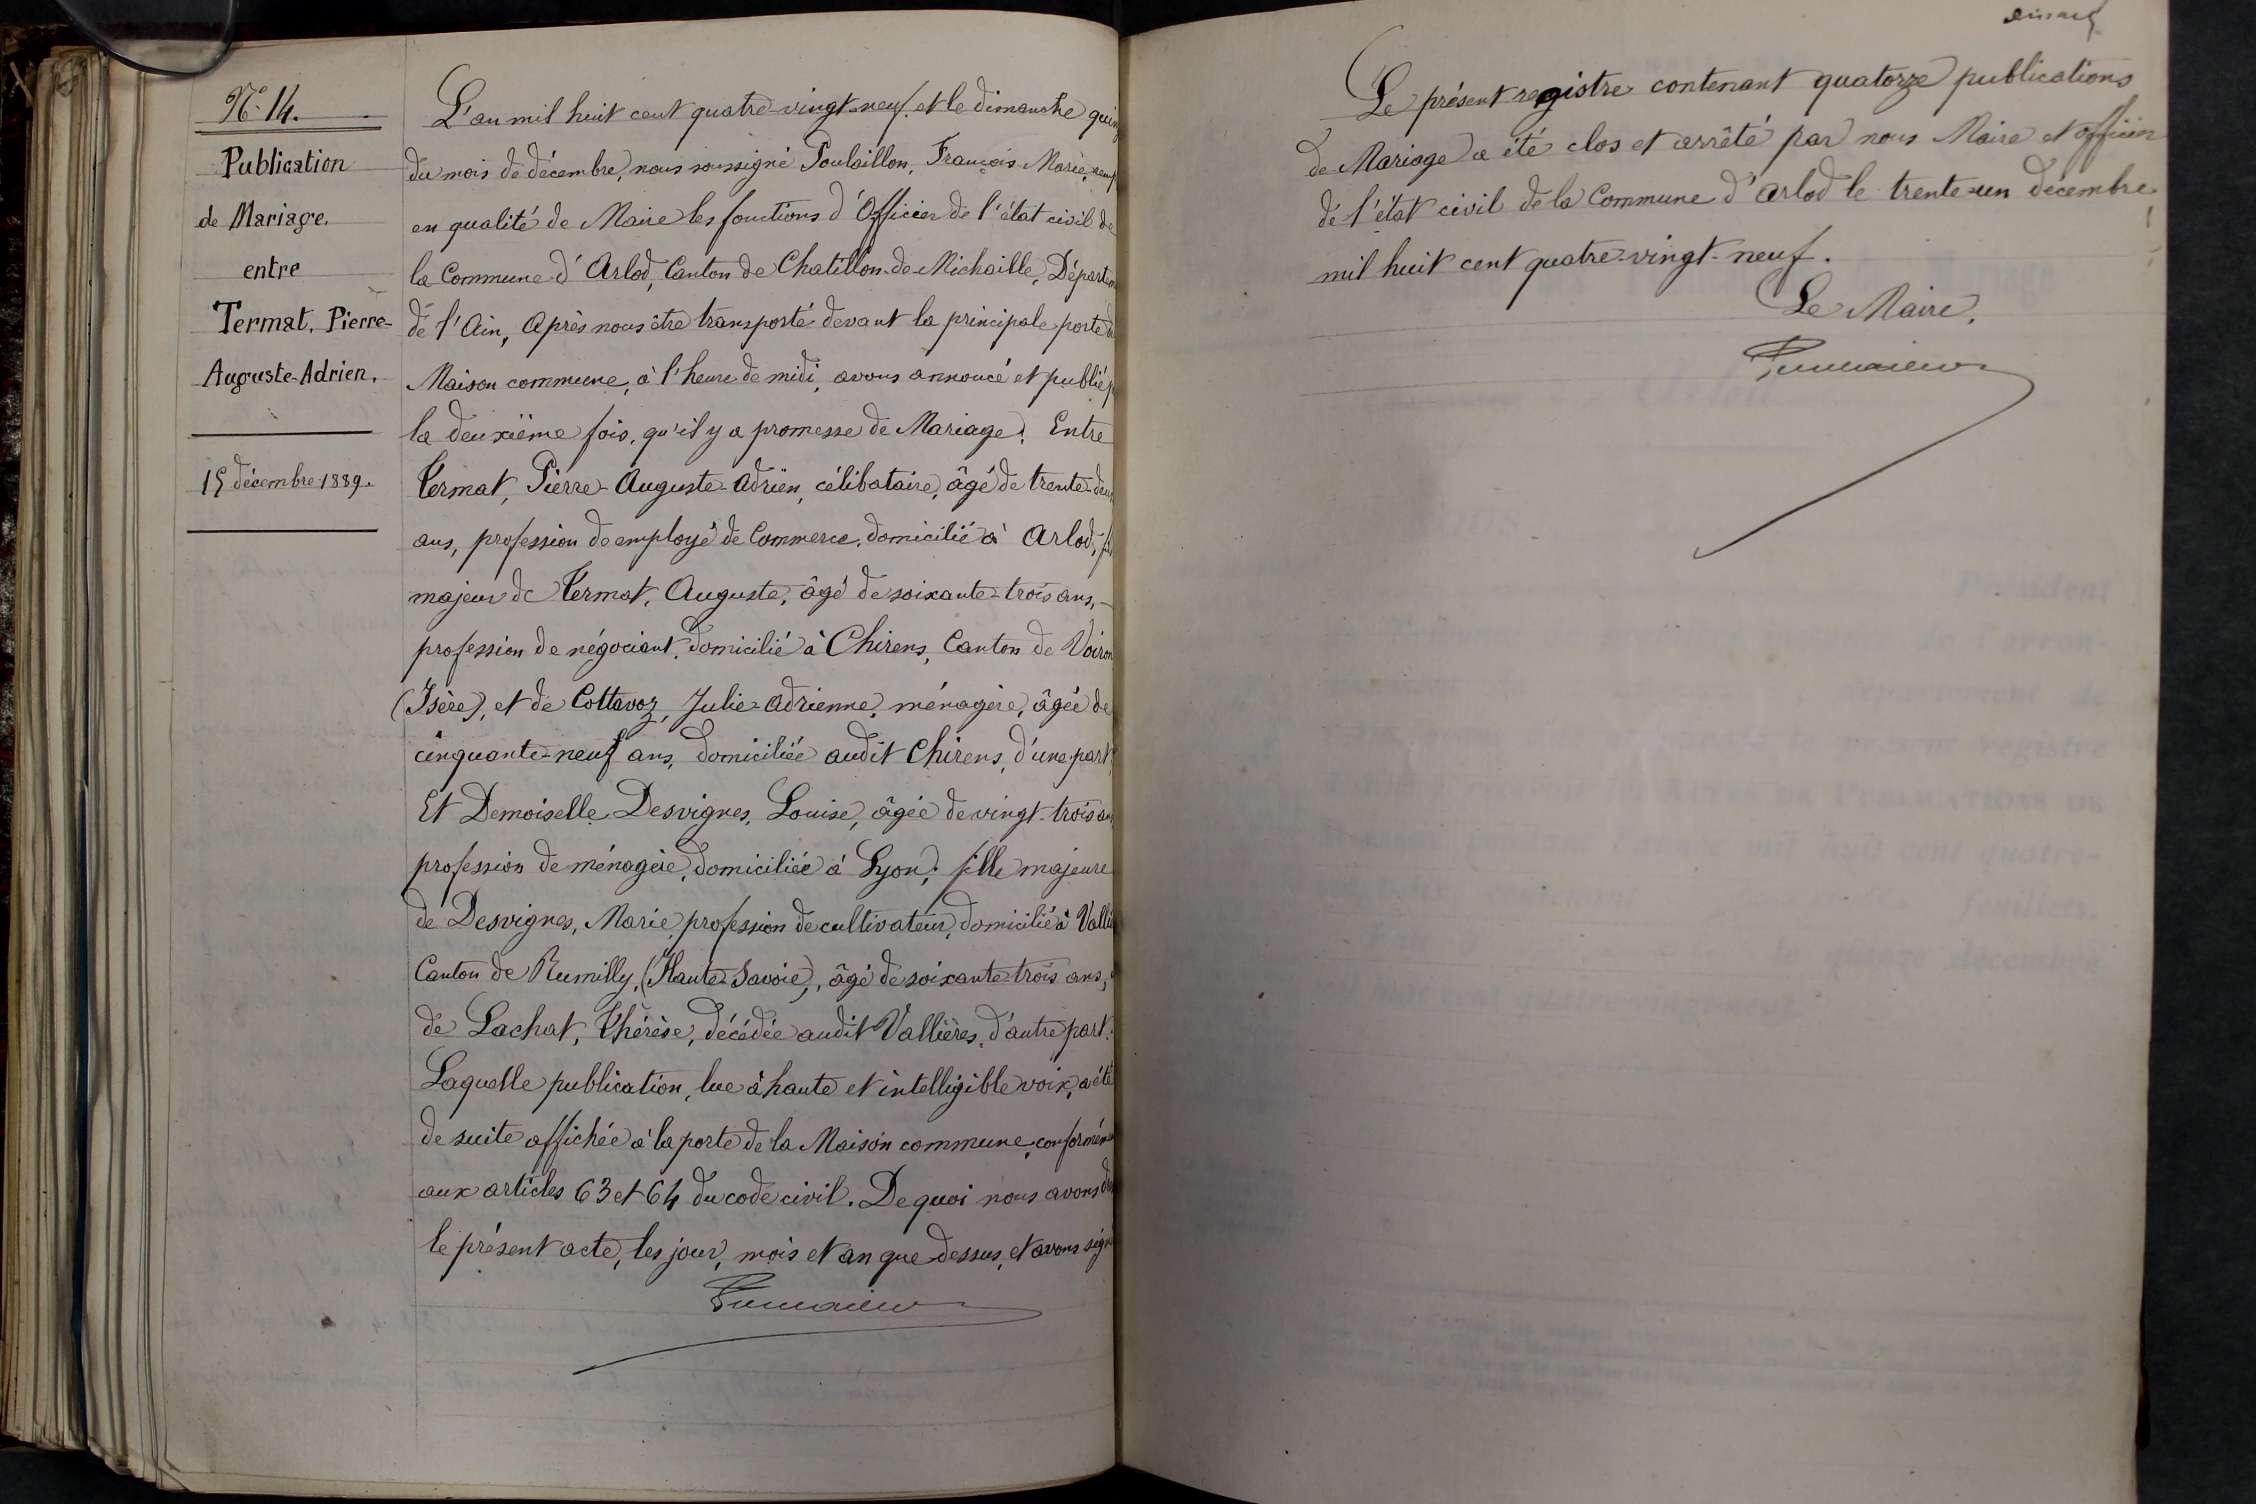 N° 14.
Publication
de Mariage.
entre
Termat, Pierre-
Auguste-Adrien.
15 décembre 1889.
L'an mil huit cent quatre-vingt-neuf. et le dimanche
du mois de décembre, nous soussigné Poulaillon, François Marie,
en qualité de Maire les fonctions d'Officier de l'état civil de
la Commune d'Arlod, Canton de Chatillon-de-Michaille,
de l'Ain, Après nous être transporté devant la principale porte
Maison commune, à l'heure de midi, avons annoncé et publié
la deuxième fois, qu'il y a promesse de Mariage. Entre
Termat, Pierre-Auguste-Adrien, célibataire, âgé de trente-
ans, profession de employé de Commerce, domicilié à Arlod,
majeur de Termat, Auguste, âgé de soixante-trois ans,
profession de négociant, domicilié à Chirens, Canton de Voiron
(Isère), et de Cottavoz, Julie-Adrienne, ménagère, âgée de
cinquante-neuf ans, domiciliée audit Chirens, d'une part,
Et Demoiselle Desvignes, Louise, âgée de vingt-trois ans
profession de ménagère, domiciliée à Lyon, fille majeure
de Desvignes, Marie, profession de cultivateur, domicilié à
Canton de Rumilly, (Haute-Savoie), âgé de soixante-trois ans,
de Lachat, Thérèse, décédée audit Vallières, d'autre part.
Laquelle publication, lue à haute et intelligible voix, a été
de suite affichée à la porte de la Maison commune,
aux articles 63 et 64 du code civil. De quoi nous avons
le présent acte, les jour, mois et an que dessus, et avons
Le présent registre contenant quatorze publications
de Mariage a été clos et arrêté par nous Maire et officier
de l'état civil de la Commune d'Arlod le trente-un décembre
mil huit cent quatre-vingt-neuf.
Le Maire,